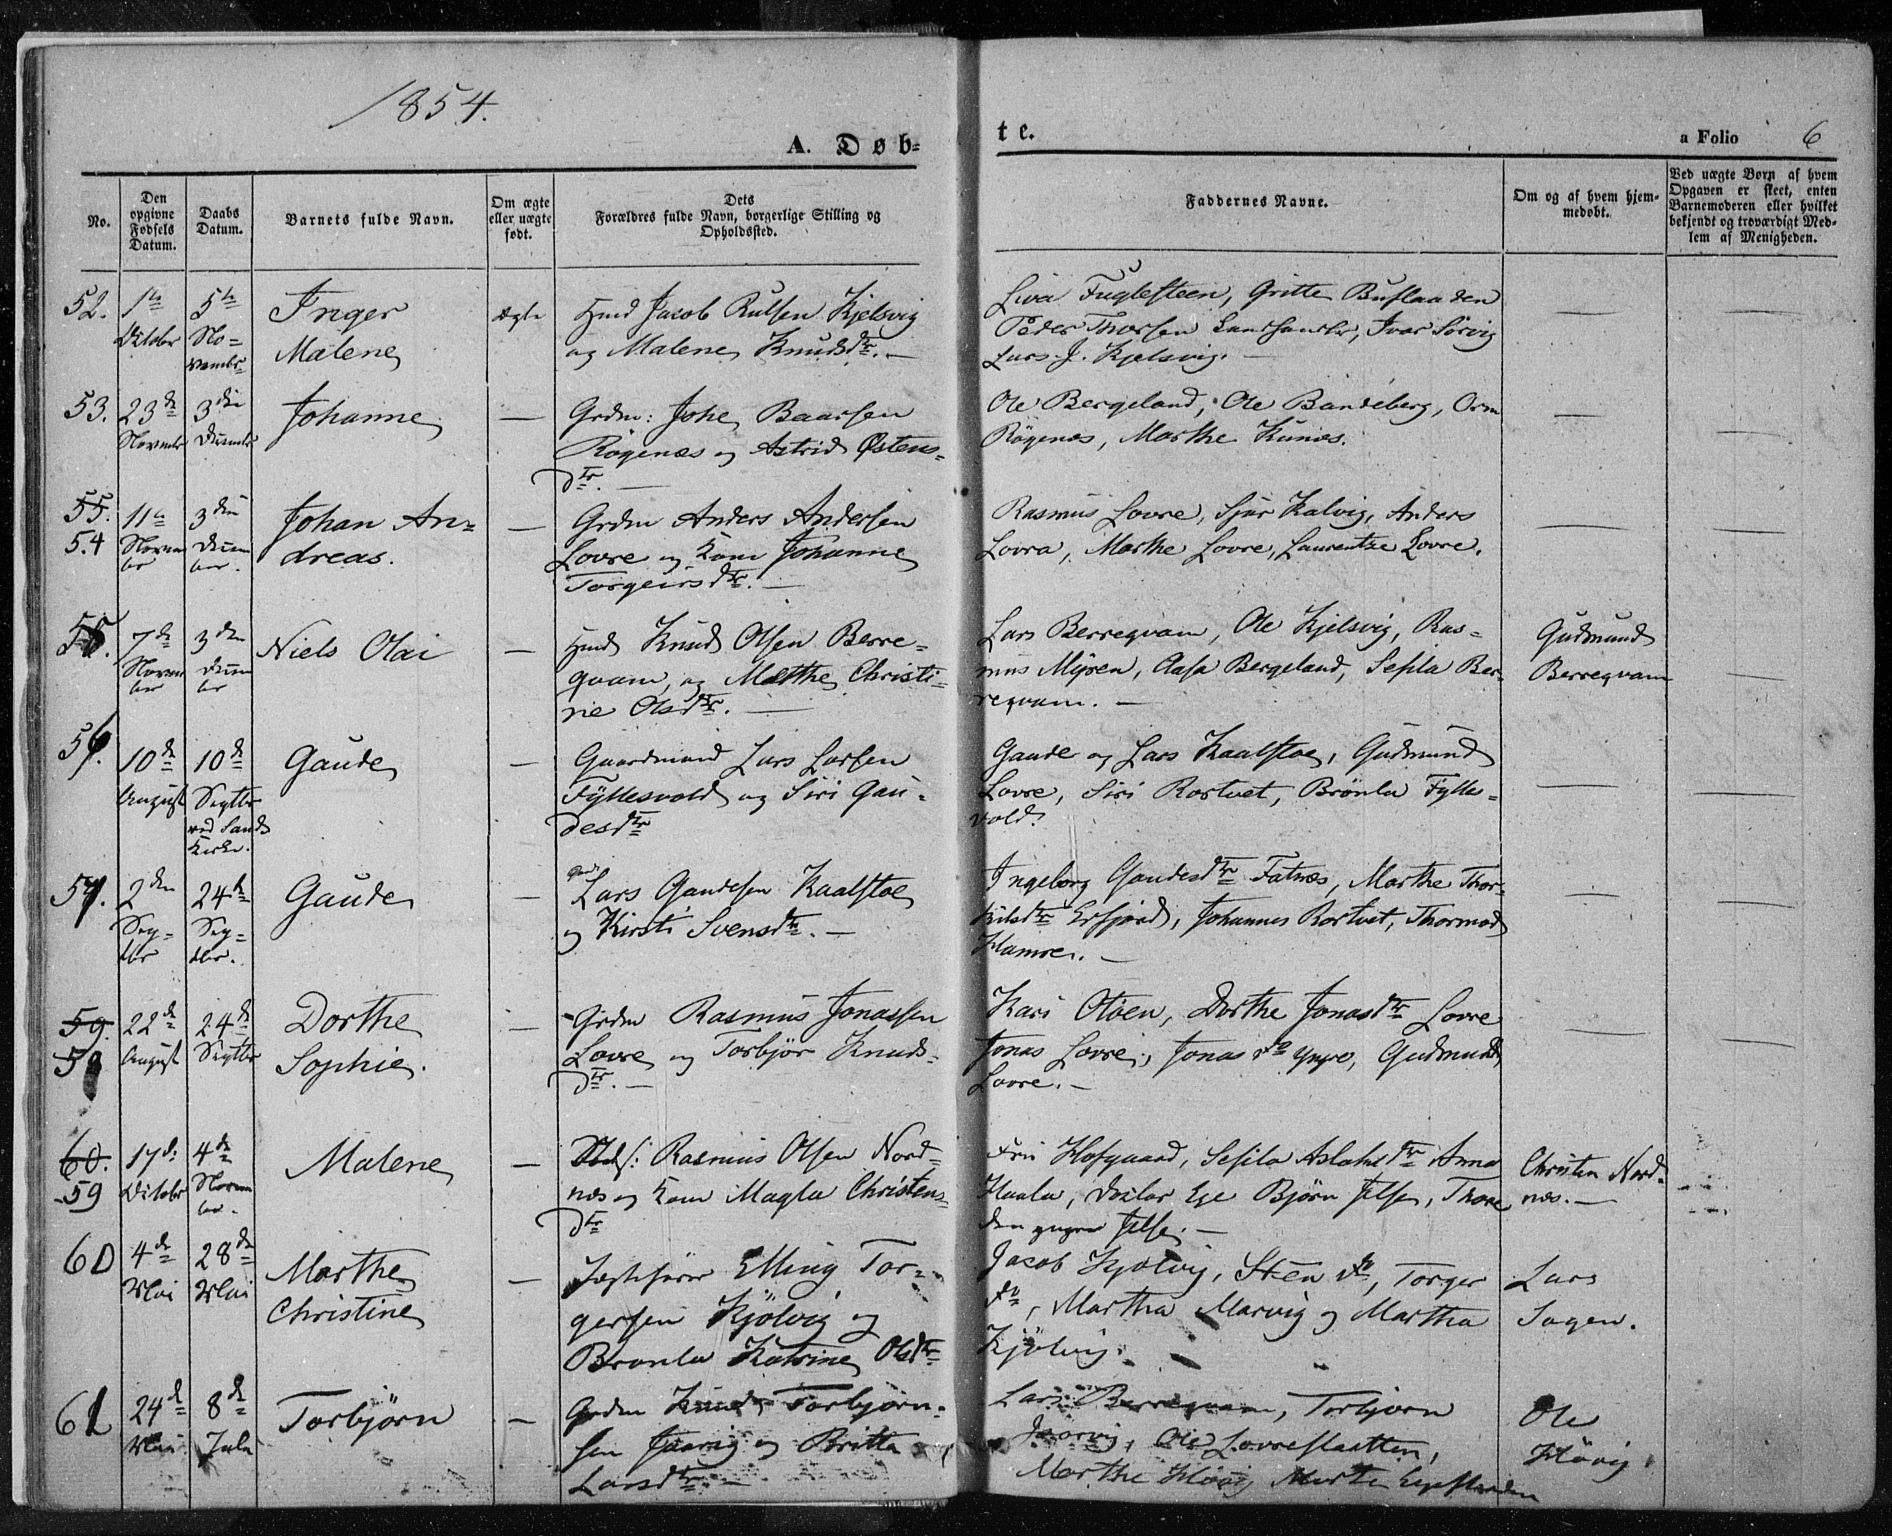 1854.
A. Døb-
te.
a Folio 6
No.
Den opgivne Fødsels Datum.
Daabs Datum.
Barnets fulde Navn.
Om ægte eller uægte født.
Dets Forældres fulde Navn, borgerlige Stilling og Opholdssted.
Faddernes Navne.
Om og af hvem hjemmedøbt.
Ved uægte Børn af hvem Opgaven er skeet, enten Barnemoderen eller hvilket bekjendt og troværdigt Medlem af Menigheden.
52. 1te Oktober
5te Novembr
Inger
Malene
ægte
Huusmd Jacob Rulsen Kjelsvig
og Malene Knudsdtr. —
Peder Thorsen Ivar Sörvig
Lars J. Kjelsvig. —
53. 23de Novembr
3die Decembr
Johanne
—
Grdm: Johe Baarsen
Rögenæs og Astrid Østens-
dtr. —
Ole Bergeland, Ole Bandeberg, Orm
Rögenæs, Marthe Kunæs.
55.
54
11te Novembr
3die Decembr.
Johan An-
dreas.
—
Grdm Anders Andersen
Lovre og Kone Johanne
Torgeirsdtr. —
Rasmus Lovre, Sjur Kalvig, Anders
Lovra, Marthe Lovre, Laurentze Lovre.
55. 7de Novembr
3die Decembr
Niels Olai
—
Huusmd Knud Olsen Berre-
qvam, og Marthe Christi-
ne Olsdtr. —
Lars Berreqvam, Ole Kjelsvig, Ras-
mus Myren, Aasa Bergeland, Sesila Ber-
reqvam. —
Gudmund
Berreqvam
56. 10de August
10de Septbr
ved Sands
Kirke.
Gaude
—
Gaardmand Lars Larsen
Fyllesvold og Siri Gau-
desdtr
Gaude og Lars Kaalstoe, Gudmund
Lovre, Siri Rortvet, Brönla Fylles-
vold.
57. 2den Septbr
24de Septbr.
Gaude
—
Lars Gaudesen Kaalstoe
og Kirsti Svensdtr. —
Ingeborg Gaudesdtr Fatnæs, Marthe Thor-
kilsdtr Erfjord, Johannes Rortvet, Thormod
Hamre. —
59.
58
22de August
24de Septbr
Dorthe
Sophie.
—
Grdm Rasmus Jonassen
Lovre og Torbjør Knuds-
dtr. —
Kari Otöen, Dorthe Jonasdtr Lovre
Jonas Lovre, Jonas do yngre, Gudmund
Lovre. —
60.
59
17de Oktober
4de Novembr.
Malene
—
Rasmus Olsen Nord-
næs og Kone Magla Christens-
dtr
Hofgaard, Sesila Aslaksdtr Anna
Haala, Ege Björn Jelse, Thore
den yngre Jelse. —
Christen Nord-
næs. —
60 4de Mai
28de Mai
Marthe
Christine
—
Elling Tor-
gersen Kjölvig og
Bronla Katrine Olsdtr
Jacob Kjolvig, Sten do, Torger
do, Martha Marvig og Martha
Kjölvig.
Lars
Sagen.
61 24de Mai
8de Juli
Torbjörn
—
Grdm Knud Torbjörn-
sen Jaarvig og Britta
Larsdtr. —
Lars Berreqvam, Torbjörn
Jaarvig, Ole Lovreslaatten,
Marthe Hövig
Ole
Hövig